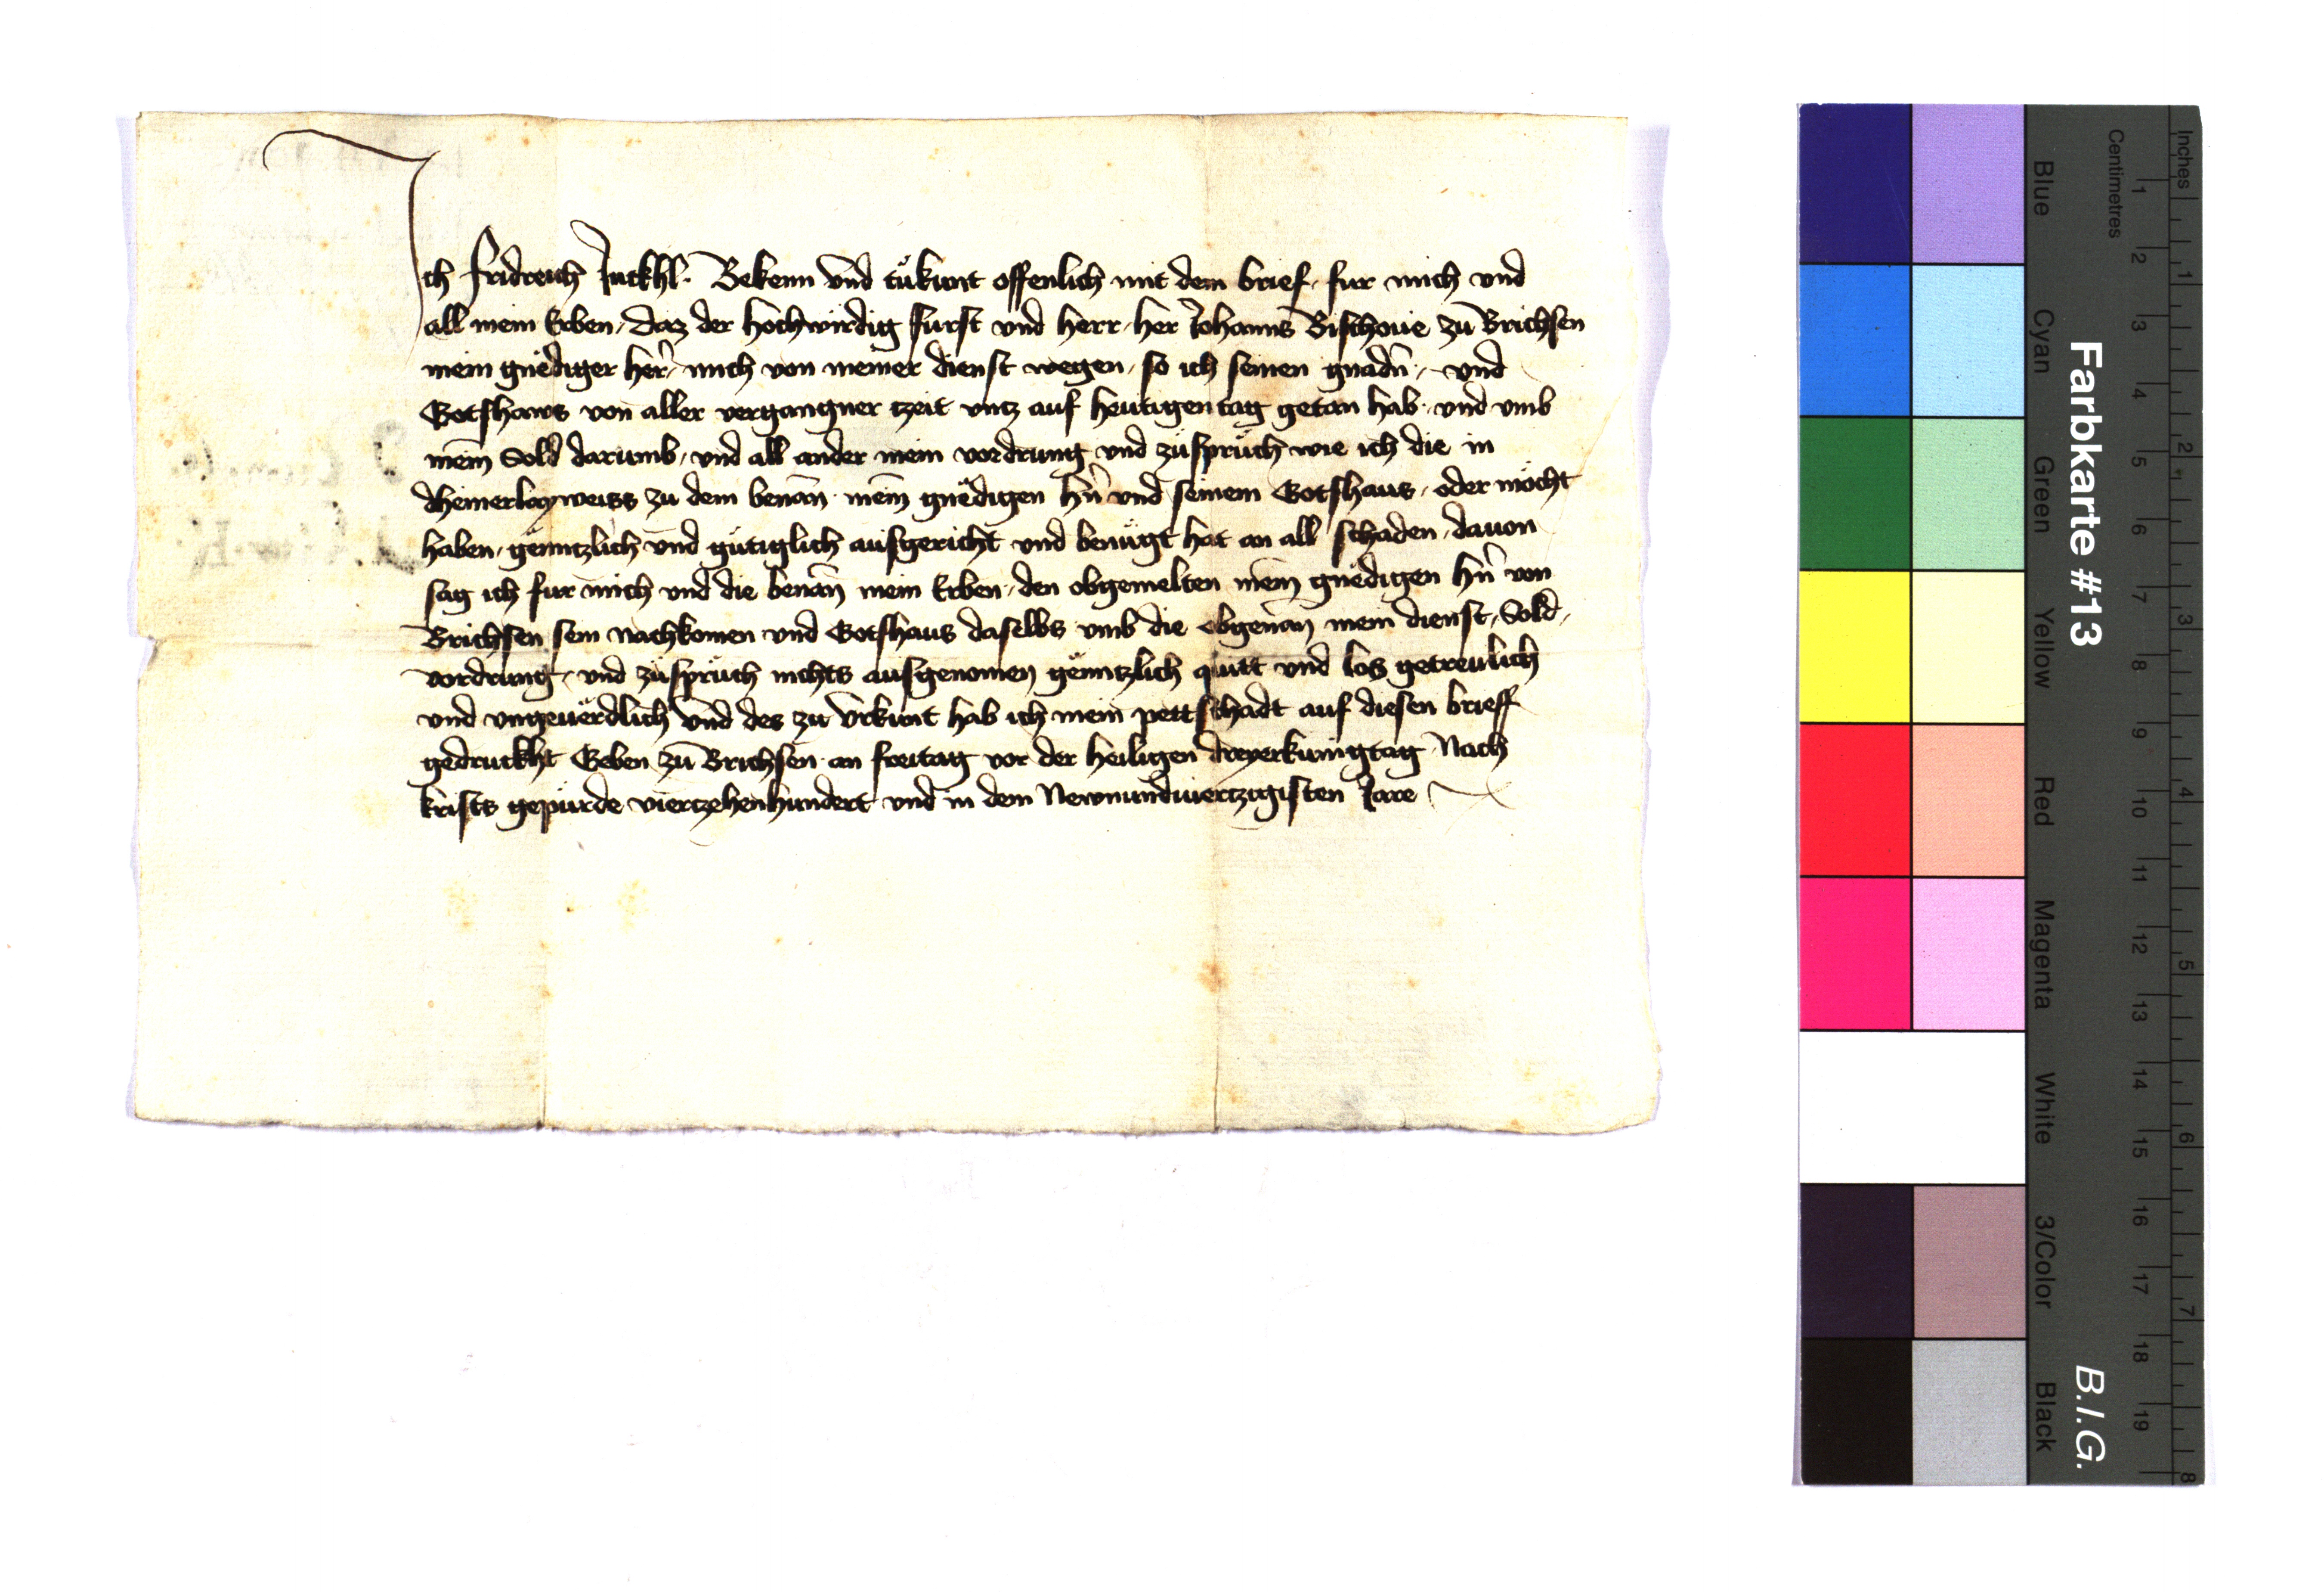 Ich Fridreich Jutkhl. Bekenn vnd tůkunt offenlich mit dem brief, fur mich vnd
all mein Erben, daz der hochwirdig furst vnd herr, her Johanns Bischoue zu Brichsen
mein gnëdiger her̄, mich von meiner dienst wegen, so ich seinen gnadn̄, vnd
Gotshaws von aller vergangner tzeit vntz auf heutigentag getan hab, vnd vmb
meīn Sold darumb, vnd all ander mein vordrung vnd zůsprüch wie ich die in
dheinerlayweiss zu dem benān meīn gnëdigen hn̄ vnd seinem Gotshaus, oder möcht
haben, gënntzlich vnd gütiglich ausgericht vnd benügt hat an all schaden, dauon
sag ich fur mich vnd die benān mein Erben, den obgemelten meīn gnëdigen hn̄ von
Brichsen sein nachkomen vnd Gotshaus daselbs vmb die obgenān mein dienst, Sold,
vordrung, vnd zůsprüch nichts ausgenomen gënntzlich quitt vnd los getreulich
vnd vngeuërdlich vnd des zu vrkunt hab ich mein pettschadt auf diesen brieff
gedruckht Geben zu Brichsen an freitag vor der heiligen dreyerkunigtag Nach
krists gepurde viertzehenhundert vnd in dem Newnundviertzigisten Jare
Farbkarte #13 B.I.G.
Inches 1 2 3 4 5 6 7 8
Centimetres 1 2 3 4 5 6 7 8 9 10 11 12 13 14 15 16 17 18 19
Blue Cyan Green Yellow Red Magenta White 3/Color Black